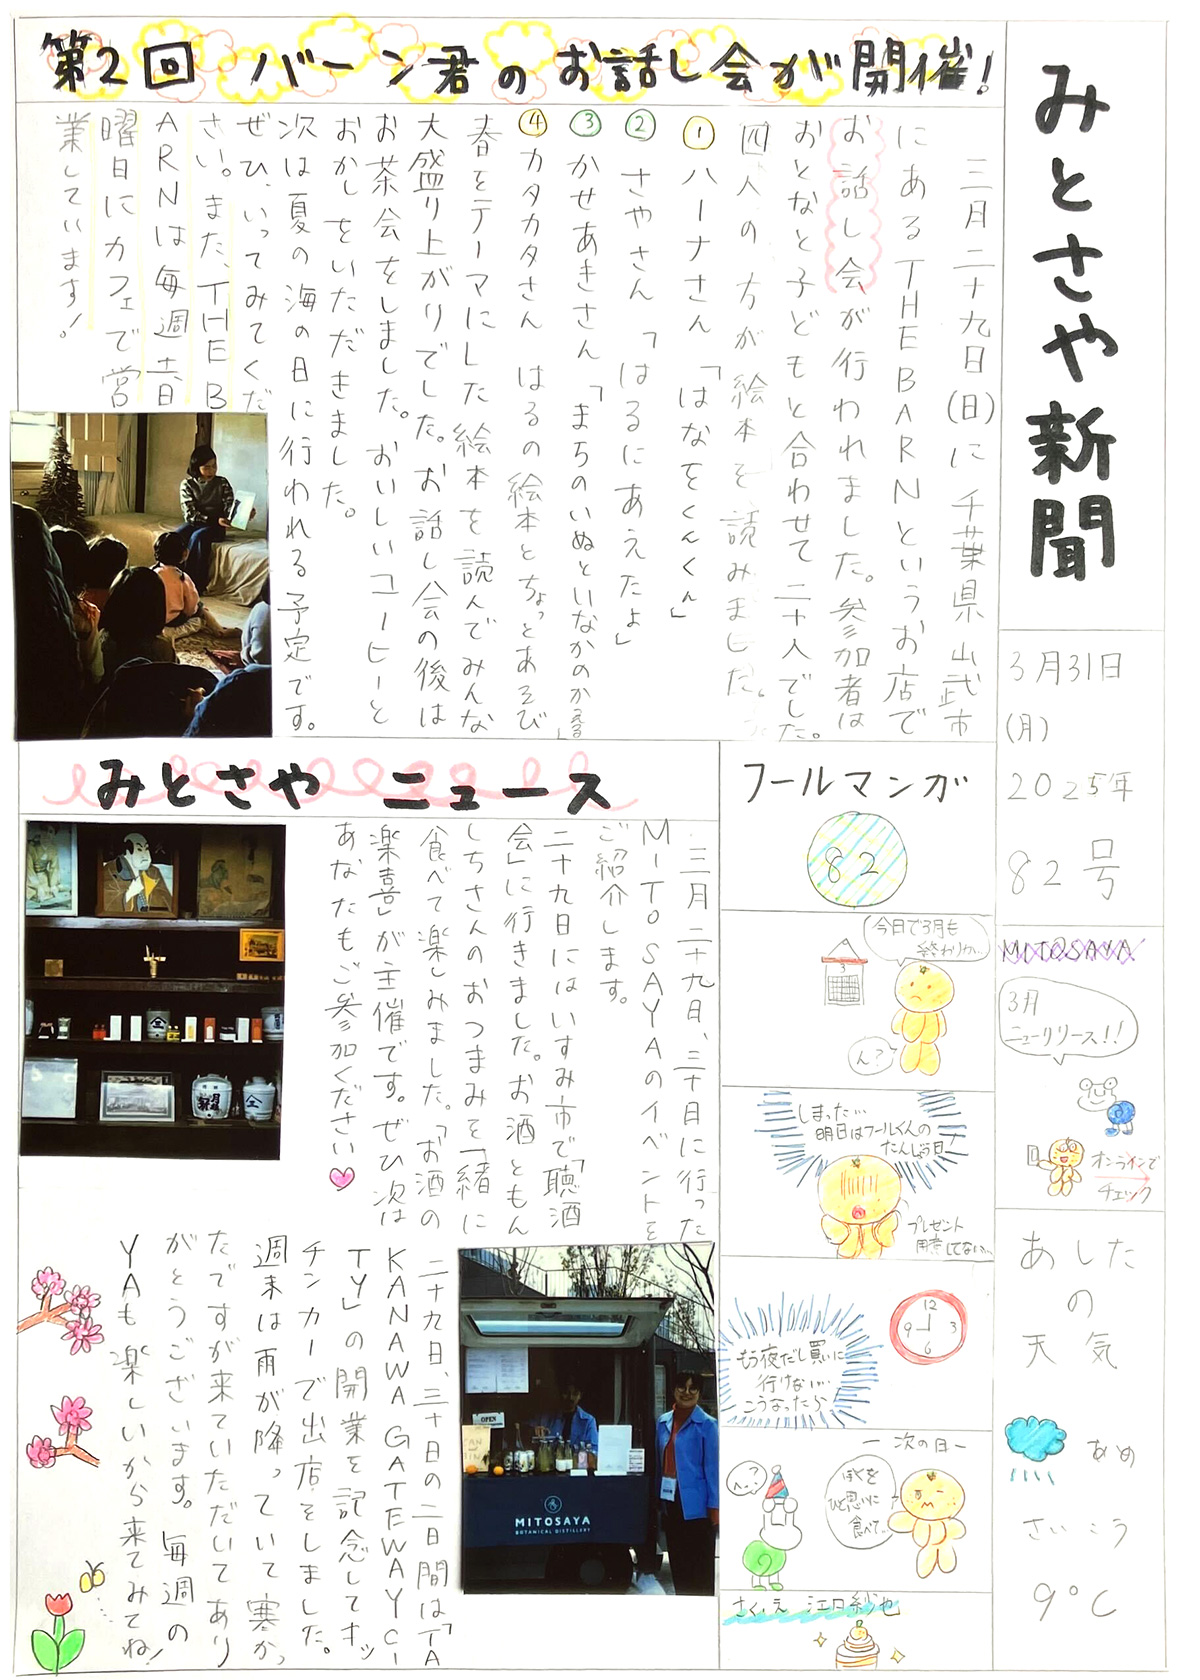 みとさや新聞
3月31日
(月)
2025年
82号
MITOSAYA
3月
ニューリリース!!
オンラインで
チェック
あした
の
天気
あめ
さいこう
9°C
第2回 バーン君のお話し会が開催!
三月二十九日(日)に千葉県山武市
にあるTHE BARNというお店で
お話し会が行われました。参加者は
おとなと子どもと合わせて二十人でした。
四人の方が絵本を読みました。
① ハーナさん「はなをくんくん」
② さやさん「はるにあえたよ」
③ かせあきさん「まちのいぬといなかのかえる」
④ カタカタさん はるの絵本とちょっとあそび
春をテーマにした絵本を読んでみんな
大盛り上がりでした。お話し会の後は
お茶会をしました。おいしいコーヒーと
おかしをいただきました。
次は夏の海の日に行われる予定です。
ぜひ、いってみてくだ
さい。また、THE B
ARNは毎週土日
曜日にカフェで営
業しています!
みとさや ニュース
三月二十九日、三十日に行った
MITOSAYAのイベントを
ご紹介します。
二十九日にはいすみ市で「聴酒
会」に行きました。お酒ともん
しちさんのおつまみを一緒に
食べて楽しみました。「お酒の
楽喜」が主催です。ぜひ次は
あなたもご参加ください
二十九日、三十日の二日間は「TA
KANAWA GATEWAY CI
TY」の開業を記念してキッ
チンカーで出店をしました。
週末は雨が降っていて寒かっ
たですが来ていただいてあり
がとうございます。毎週の
YAも楽しいから来てみてね!
OPEN
MITOSAYA
BOTANICAL DISTILLERY
フールマンガ
82
今日で3月も
終わりか…
3
ん?
しまった…
明日はフールくんの
たんじょう日!
プレゼント
用意してない…
12
9
3
6
もう夜だし買いに
行けない…
こうなったら
ー次の日ー
ぼくを
ひと思いに
食べて…
へ?
さく、え 江口紗也